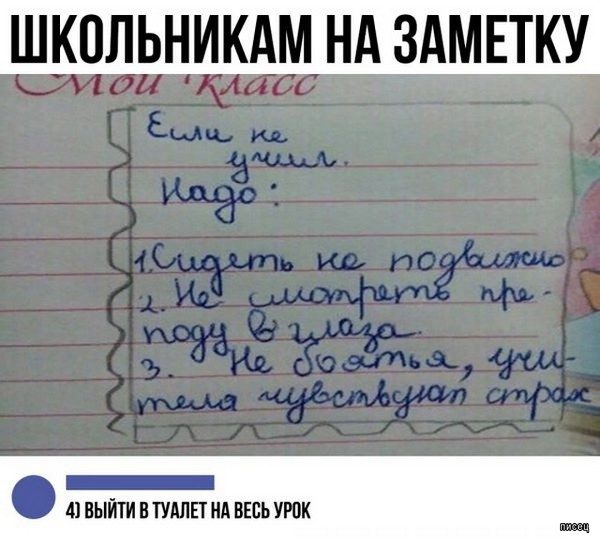 ШКОЛЬНИКАМ НА ЗАМЕТКУ
Мой класс
Если не
учил.
Надо:
1. Сидеть не подвижно
2. Не смотреть пре-
поду в глаза.
3. Не боятья, учи-
теля чувствуют страх
4) ВЫЙТИ В ТУАЛЕТ НА ВЕСЬ УРОК
писец